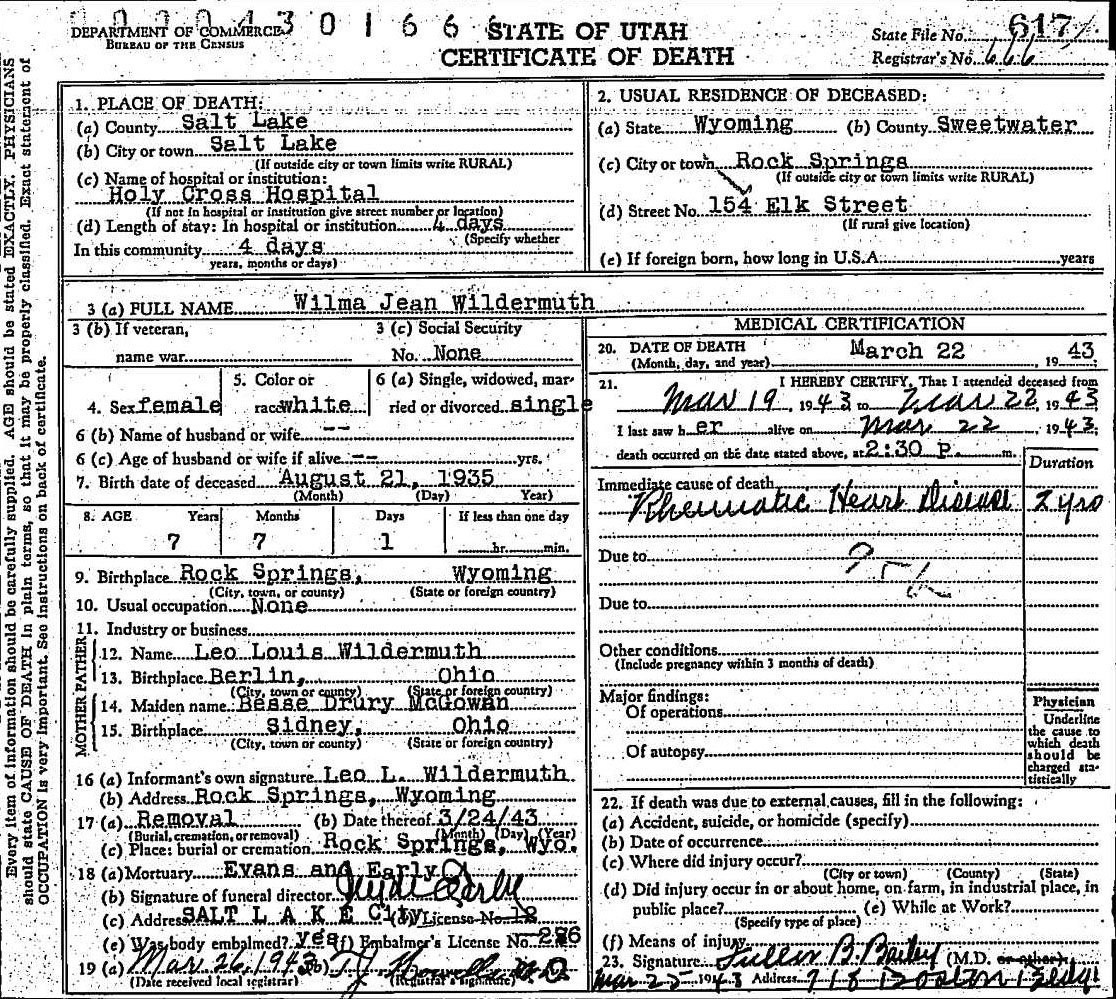 0 0 0 4 3 0 1 6 6 6
DEPARTMENT OF COMMERCE
BUREAU OF THE CENSUS
STATE OF UTAH
CERTIFICATE OF DEATH
State File No. 617
Registrar's No. 666
Every item of information should be carefully supplied. AGE should be stated EXACTLY. PHYSICIANS
should state CAUSE OF DEATH in plain terms, so that it may be properly classified. Exact statement of
OCCUPATION is very important. See instructions on back of certificate.
1. PLACE OF DEATH:
(a) County Salt Lake
(b) City or town Salt Lake
(If outside city or town limits write RURAL)
(c) Name of hospital or institution:
Holy Cross Hospital
(If not in hospital or institution give street number or location)
(d) Length of stay: In hospital or institution 4 days
(Specify whether
In this community 4 days
years, months or days)
2. USUAL RESIDENCE OF DECEASED:
(a) State Wyoming (b) County Sweetwater
(c) City or town Rock Springs
(If outside city or town limits write RURAL)
(d) Street No. 154 Elk Street
(If rural give location)
(e) If foreign born, how long in U.S.A. years
3 (a) FULL NAME Wilma Jean Wildermuth
3 (b) If veteran,
name war
3 (c) Social Security
No. None
4. Sex female
5. Color or
race white
6 (a) Single, widowed, mar-
ried or divorced single
6 (b) Name of husband or wife --
6 (c) Age of husband or wife if alive -- yrs.
7. Birth date of deceased August 21, 1935
(Month) (Day) Year)
8. AGE Years Months Days If less than one day
7 7 1 hr. min.
9. Birthplace Rock Springs, Wyoming
(City, town, or county) (State or foreign country)
10. Usual occupation None
11. Industry or business
FATHER
12. Name Leo Louis Wildermuth
13. Birthplace Berlin, Ohio
(City, town or county) (State or foreign country)
MOTHER
14. Maiden name Besse Drury McGowan
15. Birthplace Sidney, Ohio
(City, town or county) (State or foreign country)
16 (a) Informant's own signature Leo L. Wildermuth
(b) Address Rock Springs, Wyoming
17 (a) Removal (b) Date thereof 3/24/43
(Burial, cremation, or removal) (Month) (Day) (Year)
(c) Place: burial or cremation Rock Springs, Wyo.
18 (a) Mortuary Evans and Early
(b) Signature of funeral director
(c) Address SALT LAKE City License No. 12
(e) Was body embalmed? yes (f) Embalmer's License No. 286
19 (a) Mar 26, 1943 (b) M.D.
(Date received local registrar) (Registrar's signature)
MEDICAL CERTIFICATION
20. DATE OF DEATH
(Month, day, and year) March 22 1943
21. I HEREBY CERTIFY, That I attended deceased from
Mar 19, 1943 to Mar 22, 1943
I last saw h er alive on Mar 22 1943;
death occurred on the date stated above, at 2:30 P. m.
Duration
Immediate cause of death
Rheumatic Heart Disease 2 yrs
Due to
Due to
Other conditions
(Include pregnancy within 3 months of death)
Major findings:
Of operations
Of autopsy
Physician
Underline
the cause to
which death
should be
charged sta-
tistically
22. If death was due to external causes, fill in the following:
(a) Accident, suicide, or homicide (specify)
(b) Date of occurrence
(c) Where did injury occur?
(City or town) (County) (State)
(d) Did injury occur in or about home, on farm, in industrial place, in
public place? (e) While at Work?
(Specify type of place)
(f) Means of injury
23. Signature Fuller B. Bailey (M.D. or other)
Mar 25 1943 Address 718 Boston Bldg